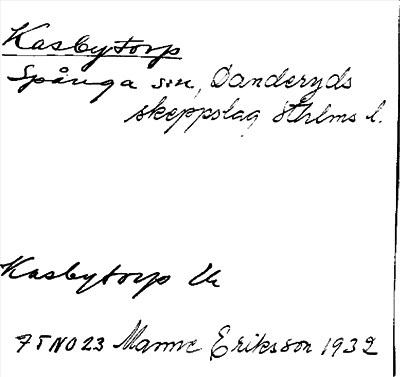 Kasbytorp
Spånga sn, Danderyds
skeppslag Sthlms l.
Kasbytorp Uk
7 T NO 23 Manne Eriksson 1932